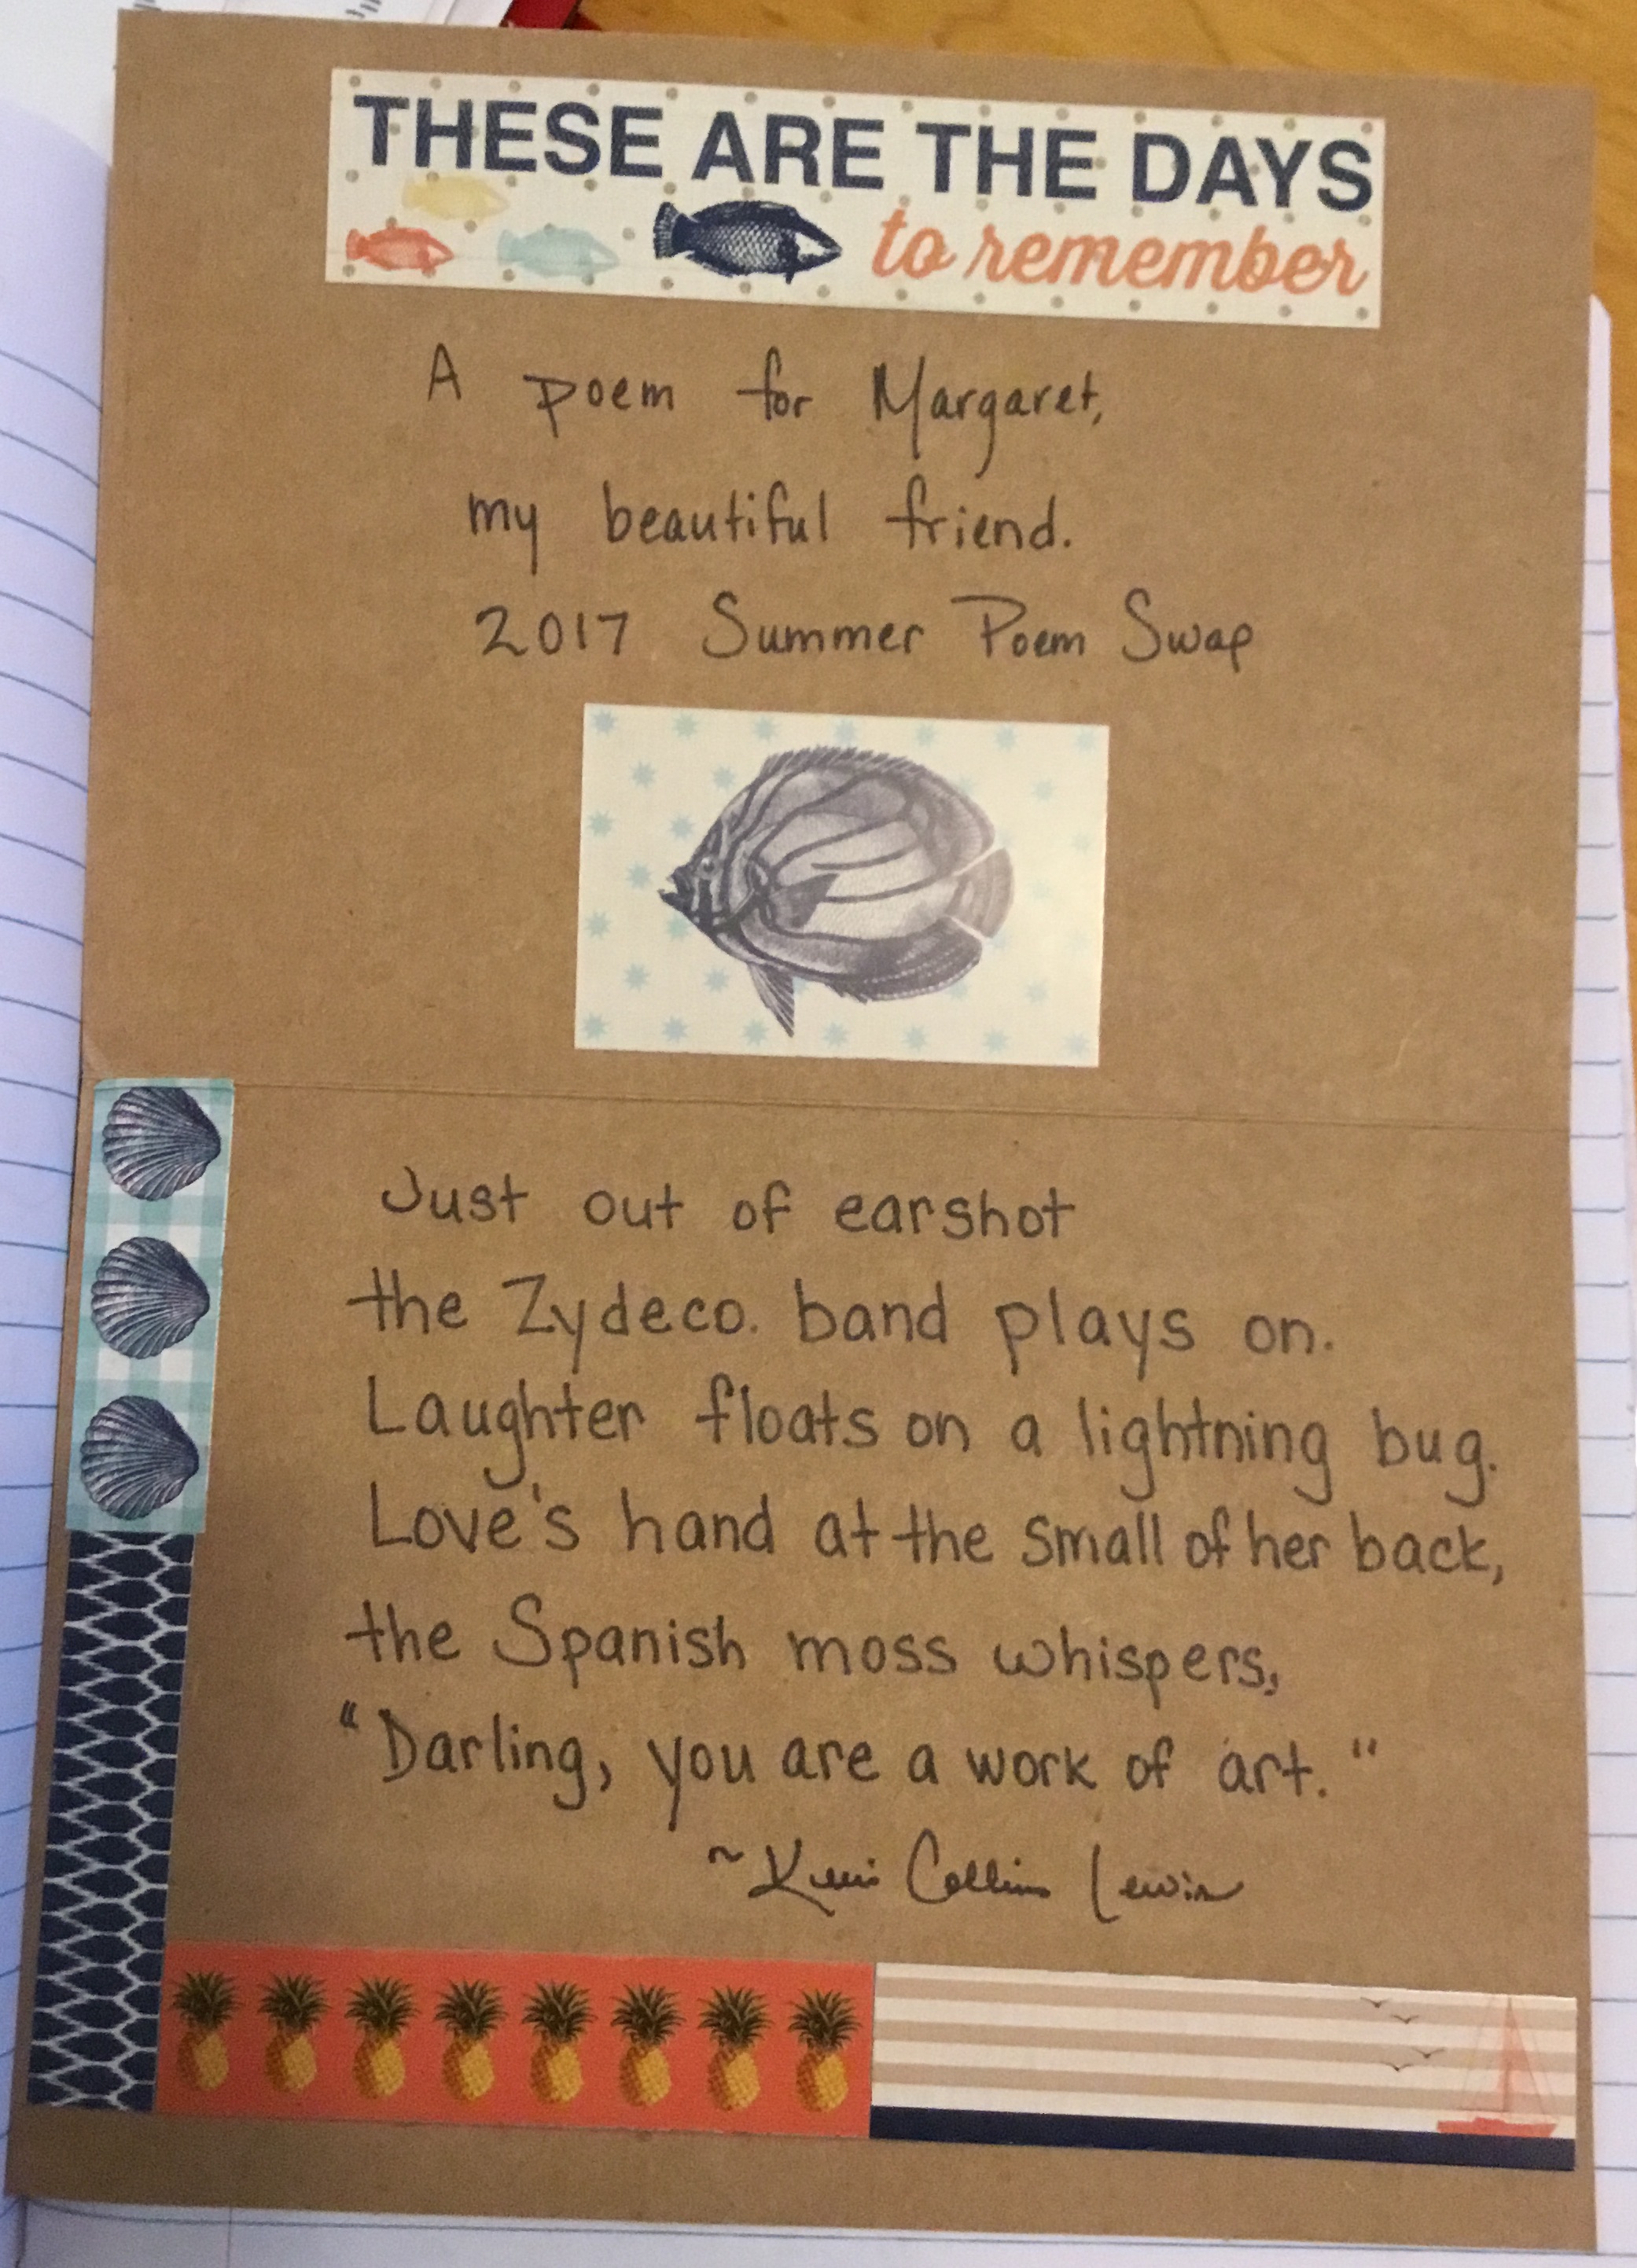 THESE ARE THE DAYS
to remember
A poem for Margaret,
my beautiful friend.
2017 Summer Poem Swap
Just out of earshot
the Zydeco. band plays on.
Laughter floats on a lightning bug.
Love's hand at the small of her back,
the Spanish moss whispers,
"Darling, you are a work of art."
~ Keri Collins Lewis